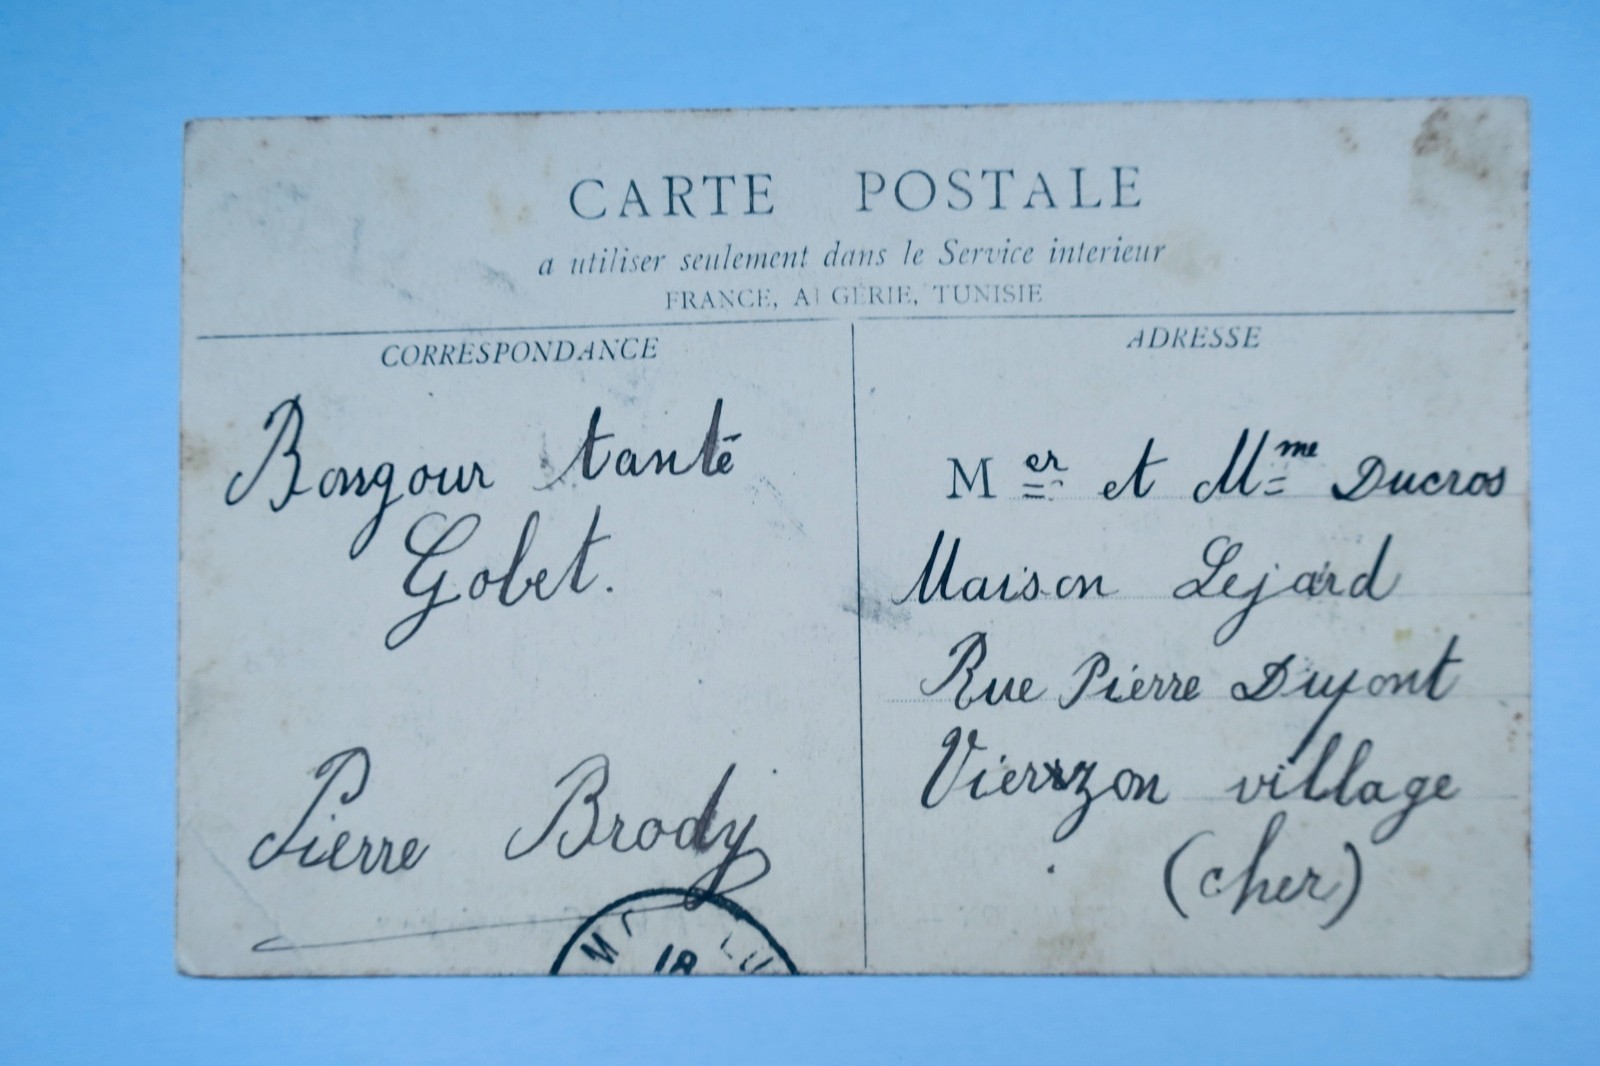 CARTE POSTALE
a utiliser seulement dans le Service interieur
FRANCE, ALGERIE, TUNISIE
CORRESPONDANCE
Bongour tante
Gobet.
Pierre Brody
ADRESSE
Mer et Mme Ducros
Maison Lejard
Rue Pierre Dupont
Vierzon village
(cher)
18